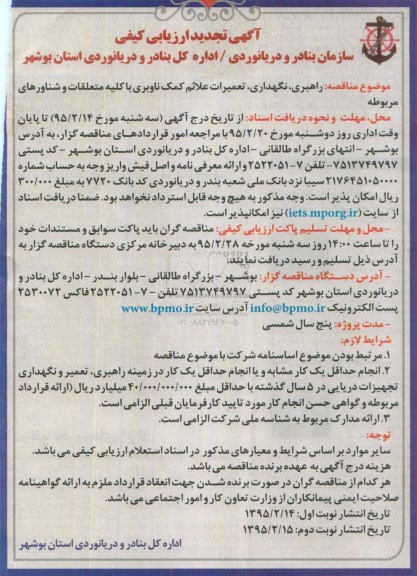 آگهی تجدید ارزیابی کیفی
سازمان بنادر و دریانوردی / اداره کل بنادر و دریانوردی استان بوشهر
موضوع مناقصه: راهبری، نگهداری، تعمیرات علائم کمک ناوبری با کلیه متعلقات و شناورهای
مربوطه
محل، مهلت و نحوه دریافت اسناد: از تاریخ درج آگهی (سه شنبه مورخ ۹۵/۲/۱۴) تا پایان
وقت اداری روز دوشنبه مورخ ۹۵/۲/۲۰ با مراجعه امور قراردادهای مناقصه گزار، به آدرس
بوشهر - انتهای بزرگراه طالقانی - اداره کل بنادر و دریانوردی استان بوشهر - کد پستی
۷۵۱۳۷۴۹۷۹۷- تلفن ۷-۲۵۲۲۰۵۱ و ارائه معرفی نامه و اصل فیش واریز وجه به حساب شماره
۲۱۷۶۴۵۱۰۵۰۰۰۰ سیبا نزد بانک ملی شعبه بندر و دریانوردی کد بانک ۷۷۲۰ به مبلغ ۳۰۰/۰۰۰
ریال امکان پذیر است. وجه مذکور به هیچ وجه قابل استرداد نخواهد بود. ضمنا دریافت اسناد
از سایت (iets.mporg.ir) نیز امکانپذیر است.
- محل و مهلت تسلیم پاکت ارزیابی کیفی: مناقصه گران باید پاکت سوابق و مستندات خود
را تا ساعت ۱۴:۰۰ روز سه شنبه مورخه ۹۵/۲/۲۸ به دبیرخانه مرکزی دستگاه مناقصه گزار به
آدرس ذیل تسلیم و رسید دریافت نمایند.
- آدرس دستگاه مناقصه گزار: بوشهر - بزرگراه طالقانی - بلوار بندر - اداره کل بنادر و
دریانوردی استان بوشهر کد پستی ۷۵۱۳۷۴۹۷۹۷ تلفن - ۷-۲۵۲۲۰۵۱ فاکس ۲۵۳۰۰۷۲
پست الکترونیک info@bpmo.ir آدرس سایت www.bpmo.ir
- مدت پروژه: پنج سال شمسی
شرایط لازم:
۱. مرتبط بودن موضوع اساسنامه شرکت با موضوع مناقصه
۲. انجام حداقل یک کار مشابه و یا انجام حداقل یک کار در زمینه راهبری، تعمیر و نگهداری
تجهیزات دریایی در ۵ سال گذشته با حداقل مبلغ ۴۰/۰۰۰/۰۰۰/۰۰۰ میلیارد ریال (ارائه قرارداد
مربوطه و گواهی حسن انجام کار مورد تایید کارفرمایان قبلی الزامی است.
۳. ارائه مدارک مربوط به شناسه ملی شرکت الزامی است.
توجه:
سایر موارد بر اساس شرایط و معیارهای مذکور در اسناد استعلام ارزیابی کیفی می باشد.
هزینه درج آگهی به عهده برنده مناقصه می باشد.
هر کدام از مناقصه گران در صورت برنده شدن جهت انعقاد قرارداد ملزم به ارائه گواهینامه
صلاحیت ایمنی پیمانکاران از وزارت تعاون کار و امور اجتماعی می باشد.
تاریخ انتشار نوبت اول: ۱۳۹۵/۲/۱۴
تاریخ انتشار نوبت دوم: ۱۳۹۵/۲/۱۵
اداره کل بنادر و دریانوردی استان بوشهر